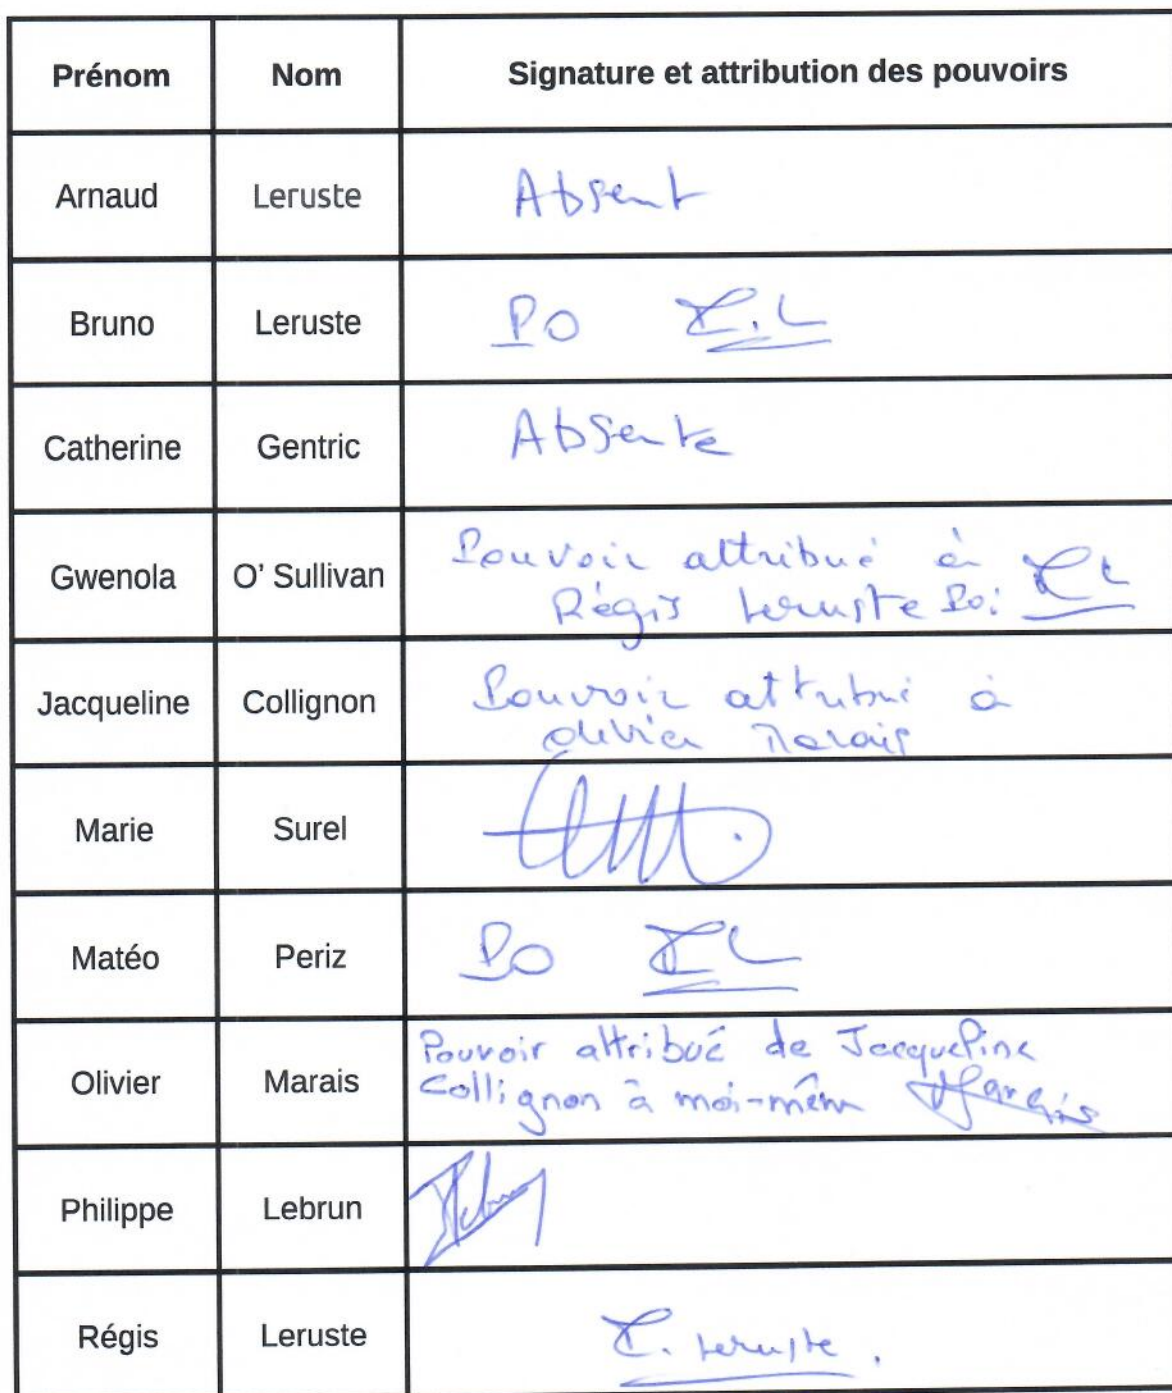 Prénom Nom Signature et attribution des pouvoirs
Arnaud Leruste Absent
Bruno Leruste PO R.L
Catherine Gentric Absente
Gwenola O' Sullivan Pouvoir attribué à
Régis Leruste Po: RL
Jacqueline Collignon Pouvoir attribué à
Olivier Marais
Marie Surel
Matéo Periz PO RL
Olivier Marais Pouvoir attribué de Jacqueline
Collignon à moi-même Marais
Philippe Lebrun Lebrun
Régis Leruste R. Leruste.